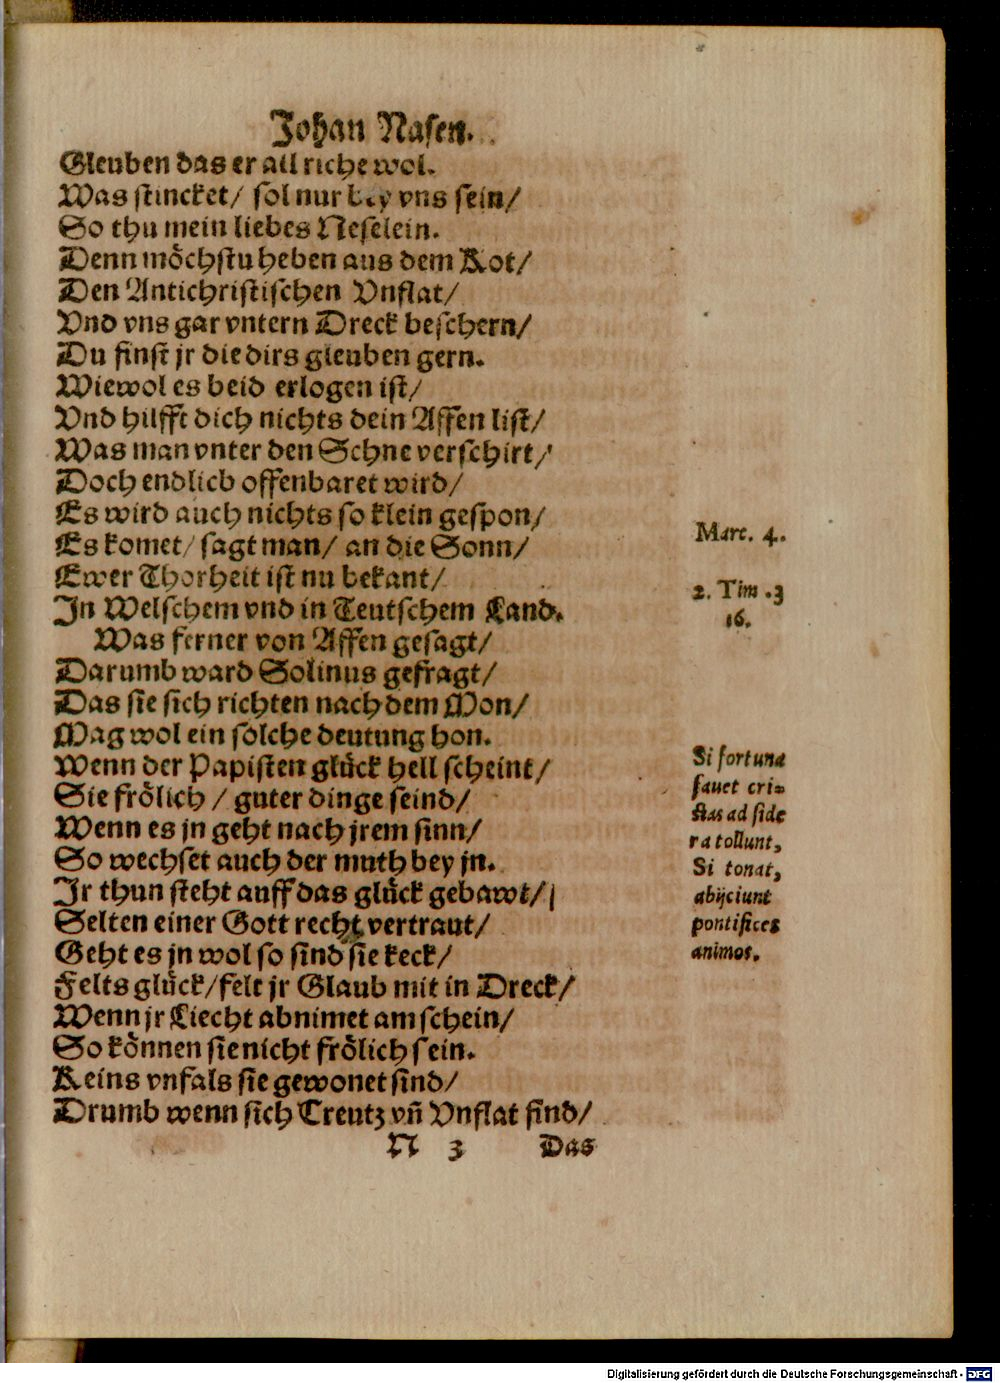 Johan Nasen.
Gleuben das er all riche wol.
Was stincket/ sol nur bey vns sein/
So thu mein liebes Neselein.
Denn möchstu heben aus dem Kot/
Den Antichristischen Vnflat/
Vnd vns gar vntern Dreck beschern/
Du finst jr die dirs gleuben gern.
Wiewol es beid erlogen ist/
Vnd hilfft dich nichts dein Affen list/
Was man vnter den Schne verschirt/
Doch endlich offenbaret wird/
Es wird auch nichts so klein gespon/
Es komet/ sagt man/ an die Sonn/
Ewer Thorheit ist nu bekant/
In Welschem vnd in Teutschem Land.
Was ferner von Affen gesagt/
Darumb ward Solinus gefragt/
Das sie sich richten nach dem Mon/
Mag wol ein solche deutung hon.
Wenn der Papisten glück hell scheint/
Sie frölich / guter dinge seind/
Wenn es jn geht nach jrem sinn/
So wechset auch der muth bey jn.
Ir thun steht auff das glück gebawt/
Selten einer Gott recht vertraut/
Geht es jn wol so sind sie keck/
Felts glück/felt jr Glaub mit in Dreck/
Wenn jr Liecht abnimet am schein/
So können sie nicht frölich sein.
Keins vnfals sie gewonet sind/
Drumb wenn sich Creutz vñ Vnflat find/
N 3 Das
Marc. 4.
2. Tim .3
16.
Si fortuna
fauet cri-
stas ad side
ra tollunt,
Si tonat,
abijciunt
pontifices
animos.
Digitalisierung gefördert durch die Deutsche Forschungsgemeinschaft - DFG